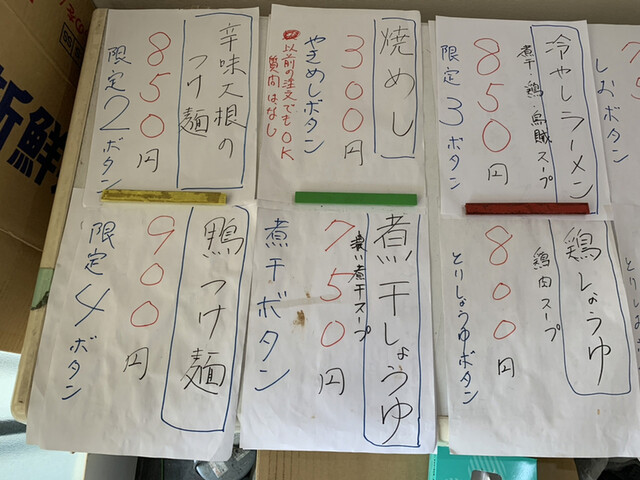 しお
冷やしラーメン
煮干・鶏・烏賊スープ
850円
限定3ボタン
焼めし
300円
やきめしボタン
以前の注文でもOK
質問はなし
辛味大根の
つけ麺
850円
限定2ボタン
鶏しょうゆ
鶏肉スープ
800円
とりしょうゆボタン
煮干しょうゆ
濃い煮干スープ
750円
煮干ボタン
鴨つけ麺
900円
限定4ボタン
新鮮